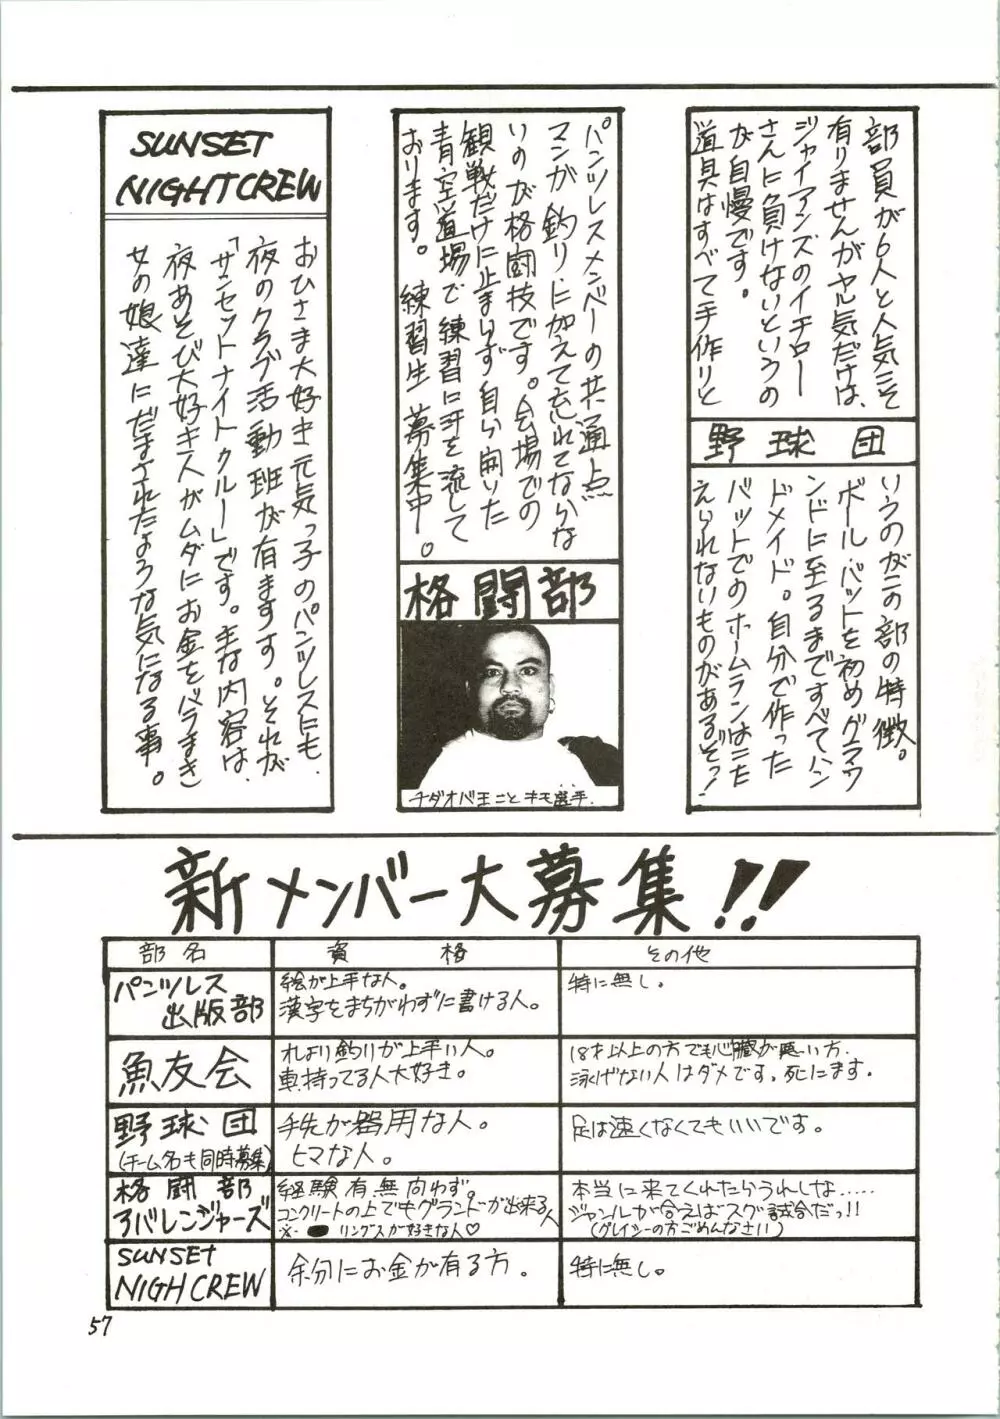 部員が6人と人気こそ
有りませんがヤル気だけは、
ジャイアンズのイチロー
さんに負けないというの
が自慢です。
道具はすべて手作りと
野球団
いうのがこの部の特徴。
ボール、バットを初めグラウ
ンドに至るまですべてハン
ドメイド。自分で作った
バットでのホームランはこた
えられないものがあるぞっ!
パンツレスメンバーの共通点
マンガ、釣り、に加えて忘れてならな
いのが格闘技です。会場での
観戦だけに止まらず自ら開いた
青空道場で練習に汗を流して
おります。練習生募集中。
格闘部
チダオバ王こと キモ選手.
SUNSET
NIGHTCREW
おひさま大好き元気っ子のパンツレスにも、
夜のクラブ活動班が有ますす。それが
「サンセットナイトクルー」です。主な内容は、
夜あそび大好き人がムダにお金をバラまき
女の娘達にだまされたような気になる事。
新メンバー大募集!!
部名 資格 その他
パンツレス
出版部
絵が上手な人。
漢字をまちがわずに書ける人。
特に無し。
魚友会
れより釣りが上手い人。
車持ってる人大好き。
18才以上の方でも心臓が悪い方.
泳げない人はダメです。死にます。
野球団
(チーム名も同時募集)
手先が器用な人。
ヒマな人。
足は速くなくてもいいです。
格闘部
アバレンジャーズ
経験有無問わず。
コンクリートの上でもグランドが出来る人
※- リングスが好きな人♡
本当に来てくれたらうれしな.....
ジャンルが合えばスグ試合だっ!!
(グレイシーの方ごめんなさい)
SUNSET
NIGHCREW
余分にお金が有る方。
特に無し。
57